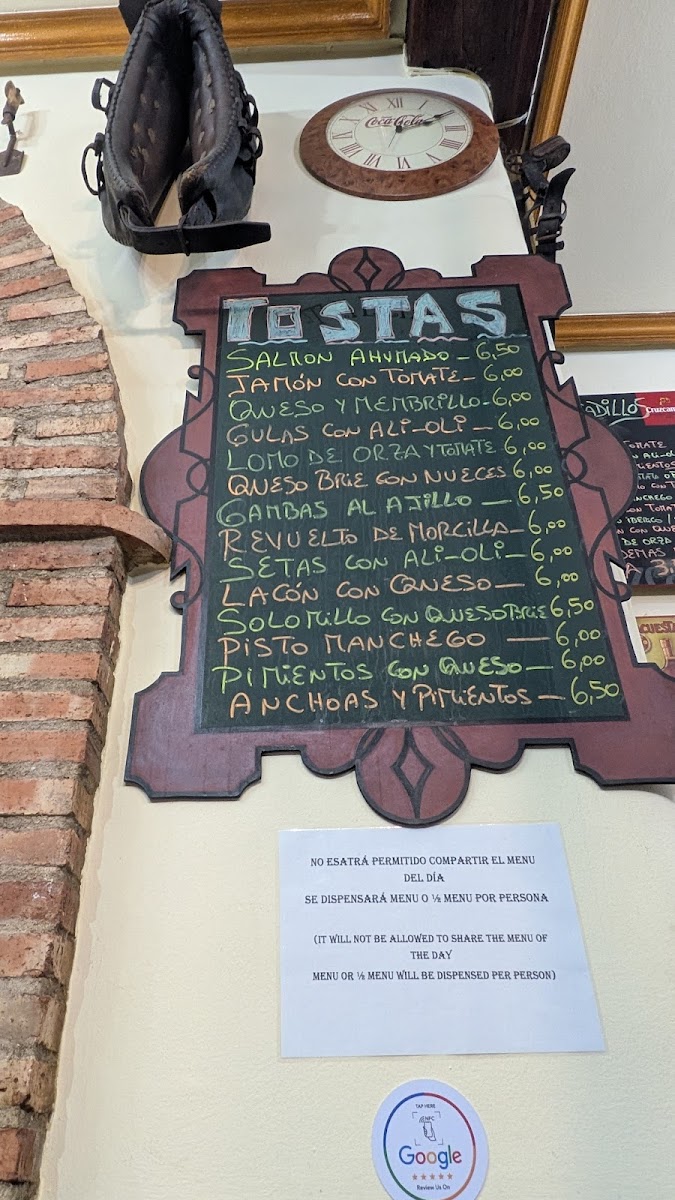 XII
Coca-Cola
TOSTAS
SALMON AHUMADO - 6,50
JAMÓN CON TOMATE - 6,00
QUESO Y MEMBRILLO - 6,00
GULAS CON ALI-OLI - 6,00
LOMO DE ORZA Y TOMATE 6,00
QUESO BRIE CON NUECES 6,00
GAMBAS AL AJILLO - 6,50
REVUELTO DE MORCILLA - 6,00
SETAS CON ALI-OLI - 6,00
LACÓN CON QUESO - 6,00
SOLOMILLO CON QUESO BRIE 6,50
PISTO MANCHEGO - 6,00
PIMIENTOS CON QUESO - 6,00
ANCHOAS Y PIMIENTOS - 6,50
ADILLOS Cruzcam
TOMATE
DE ORZA
DEMAS
A 3,
CUESTA
NO ESATRÁ PERMITIDO COMPARTIR EL MENU
DEL DÍA
SE DISPENSARÁ MENU O ½ MENU POR PERSONA
(IT WILL NOT BE ALLOWED TO SHARE THE MENU OF
THE DAY
MENU OR ½ MENU WILL BE DISPENSED PER PERSON)
TAP HERE
Google
Review Us On